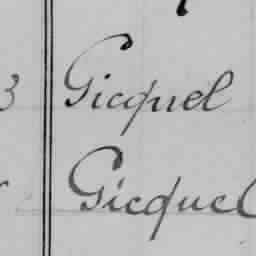 3 Gicquel
Gicquel